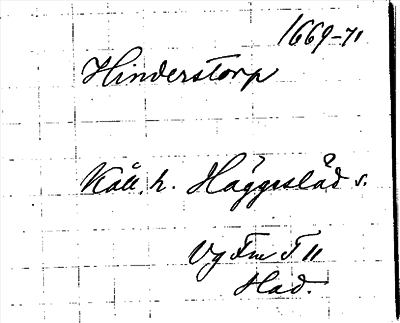 1669-71
Hinderstorp
Kåll. h. Häggeslåd s.
Vg Fm T 11
Had.